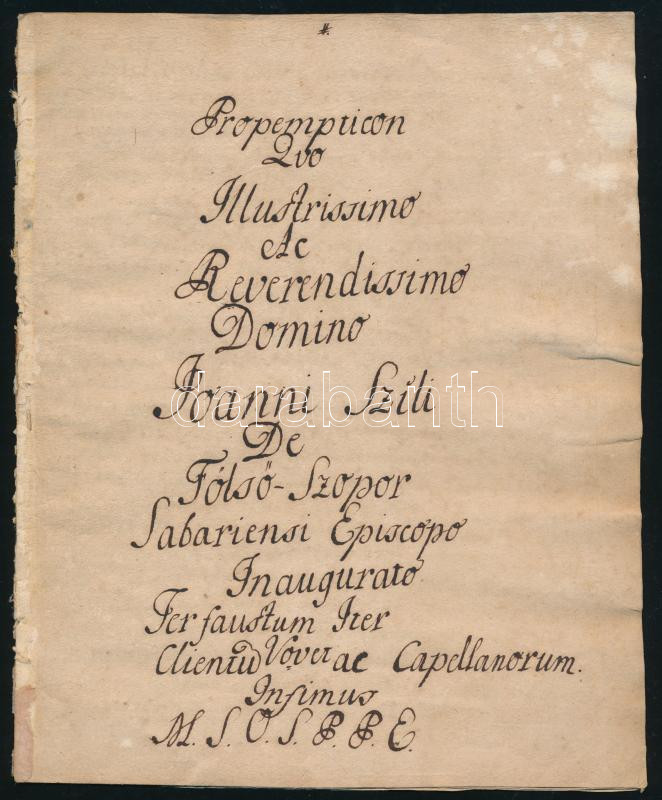 #.
Propempticon
Qvo
Illustrissimo
Ac
Reverendissimo
Domino
Joanni Szili
De
Fölsö-Szopor
Sabariensi Episcopo
Inaugurato
Ter faustum Iter
Vovet
Clientum ac Capellanorum.
Infimus
M. S. O. S. P. P. E.
darabanth